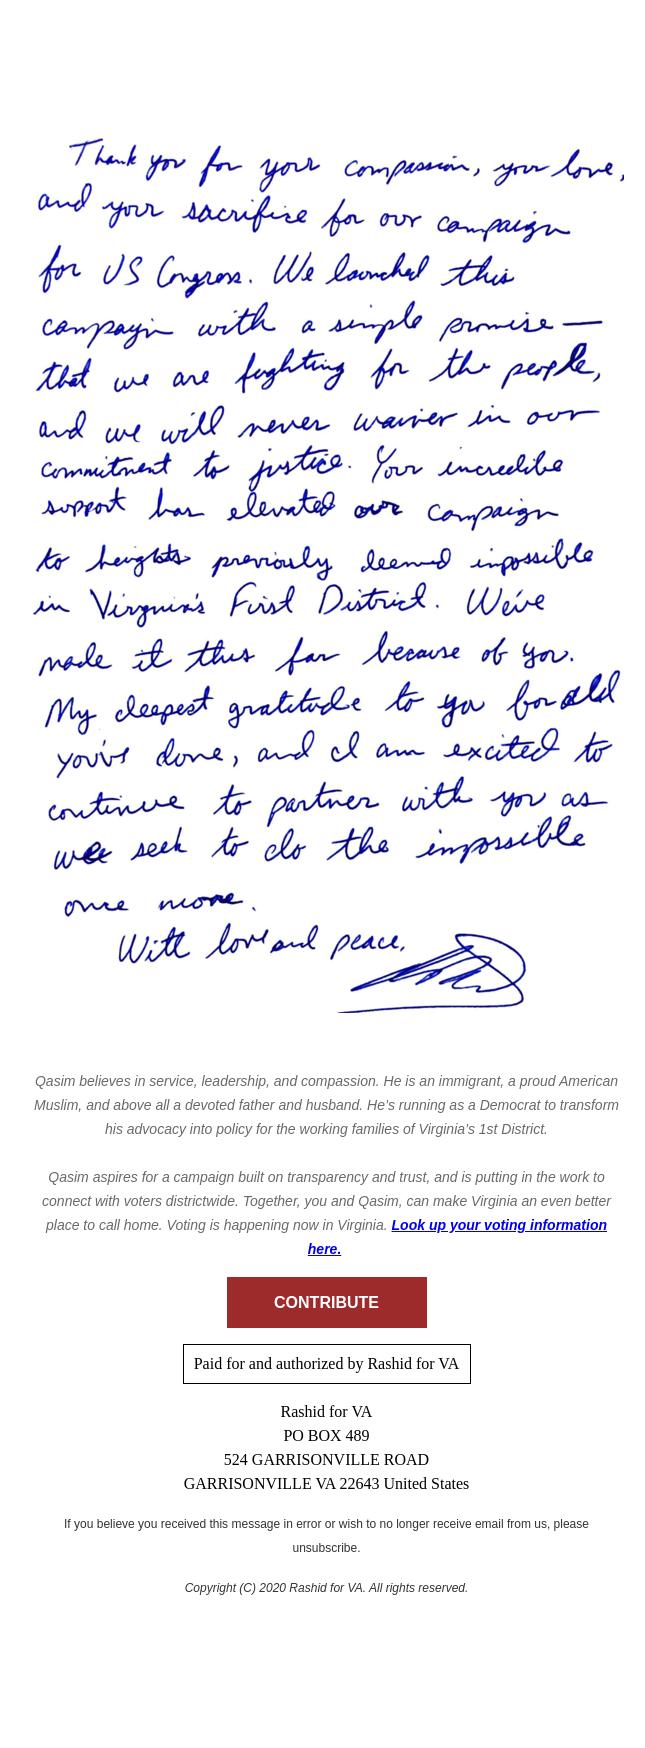 Thank you for your compassion, your love,
and your sacrifice for our campaign
for US Congress. We launched this
campaign with a simple promise —
that we are fighting for the people,
and we will never waiver in our
commitment to justice. Your incredible
support has elevated our campaign
to heights previously deemed impossible
in Virginia's First District. We've
made it this far because of you.
My deepest gratitude to you for all
you've done, and I am excited to
continue to partner with you as
we seek to do the impossible
once more.
With love and peace,
Qasim believes in service, leadership, and compassion. He is an immigrant, a proud American
Muslim, and above all a devoted father and husband. He's running as a Democrat to transform
his advocacy into policy for the working families of Virginia's 1st District.
Qasim aspires for a campaign built on transparency and trust, and is putting in the work to
connect with voters districtwide. Together, you and Qasim, can make Virginia an even better
place to call home. Voting is happening now in Virginia. Look up your voting information
here.
CONTRIBUTE
Paid for and authorized by Rashid for VA
Rashid for VA
PO BOX 489
524 GARRISONVILLE ROAD
GARRISONVILLE VA 22643 United States
If you believe you received this message in error or wish to no longer receive email from us, please
unsubscribe.
Copyright (C) 2020 Rashid for VA. All rights reserved.